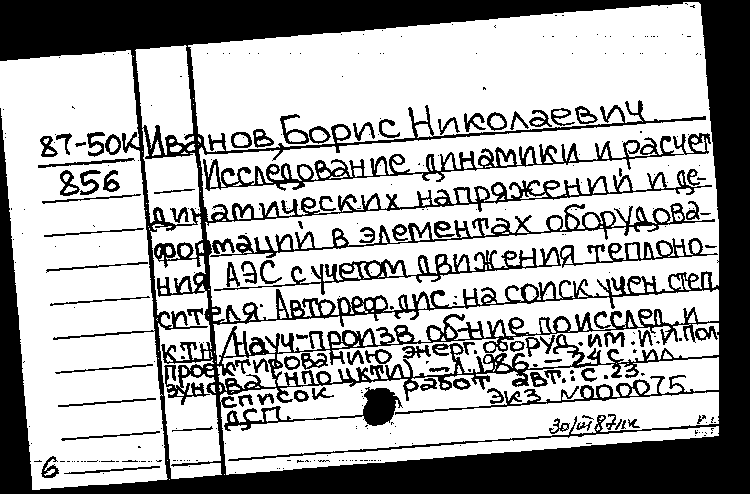 87-50К Иванов, Борис Николаевич
856 Исследование динамики и расчет
динамических напряжений и де-
формаций в элементах оборудова-
ния АЭС с учетом движения теплоно-
сителя: Автореф. дис. на соиск. учен. степ.
к.т.н. / Науч.-произв. об-ние по исслед. и
проектированию энерг. оборуд. им. И.И. Пол-
зунова (НПО ЦКТИ). — Л., 1986. — 24 с.: ил.
список работ авт.: с. 23.
ДСП. экз. N000075.
6